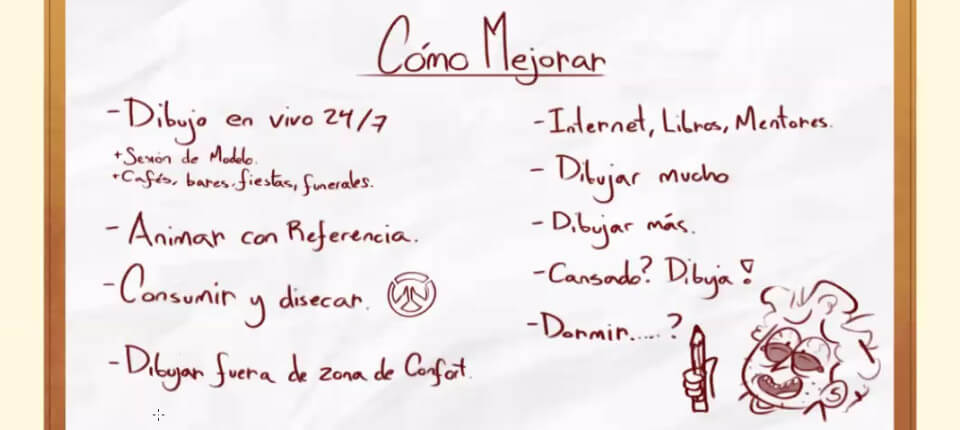 Cómo Mejorar
- Dibujo en vivo 24/7
+ Sesión de Modelo.
+ Cafés, bares, fiestas, funerales.
- Animar con Referencia.
- Consumir y disecar.
- Dibujar fuera de zona de Confort.
- Internet, Libros, Mentores.
- Dibujar mucho
- Dibujar más.
- Cansado? Dibuja!
- Dormir.....?